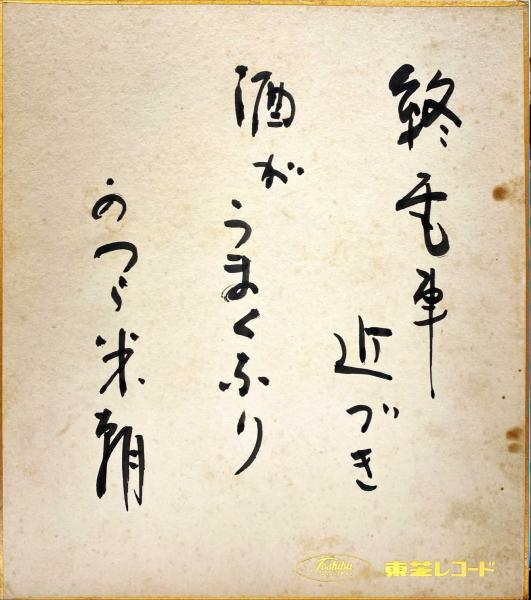 終電車
近づき
酒が
うまくなり
かつら米朝
Toshiba
東芝レコード